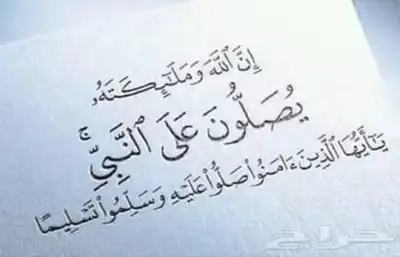 إِنَّ ٱللَّهَ وَمَلَـٰٓئِكَتَهُۥ
يُصَلُّونَ عَلَى ٱلنَّبِىِّ ۚ
يَـٰٓأَيُّهَا ٱلَّذِينَ ءَامَنُوا۟ صَلُّوا۟ عَلَيْهِ وَسَلِّمُوا۟ تَسْلِيمًا
حراج